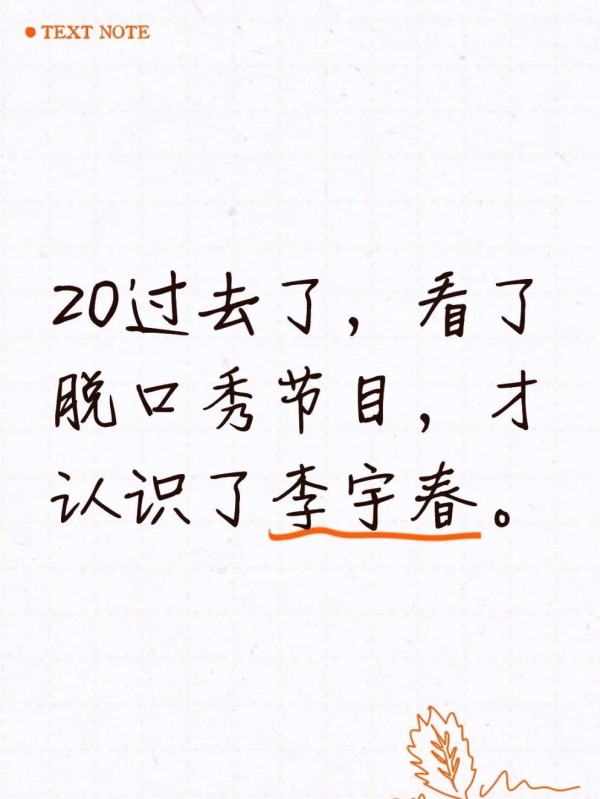 TEXT NOTE
20过去了，看了
脱口秀节目，才
认识了李宇春。